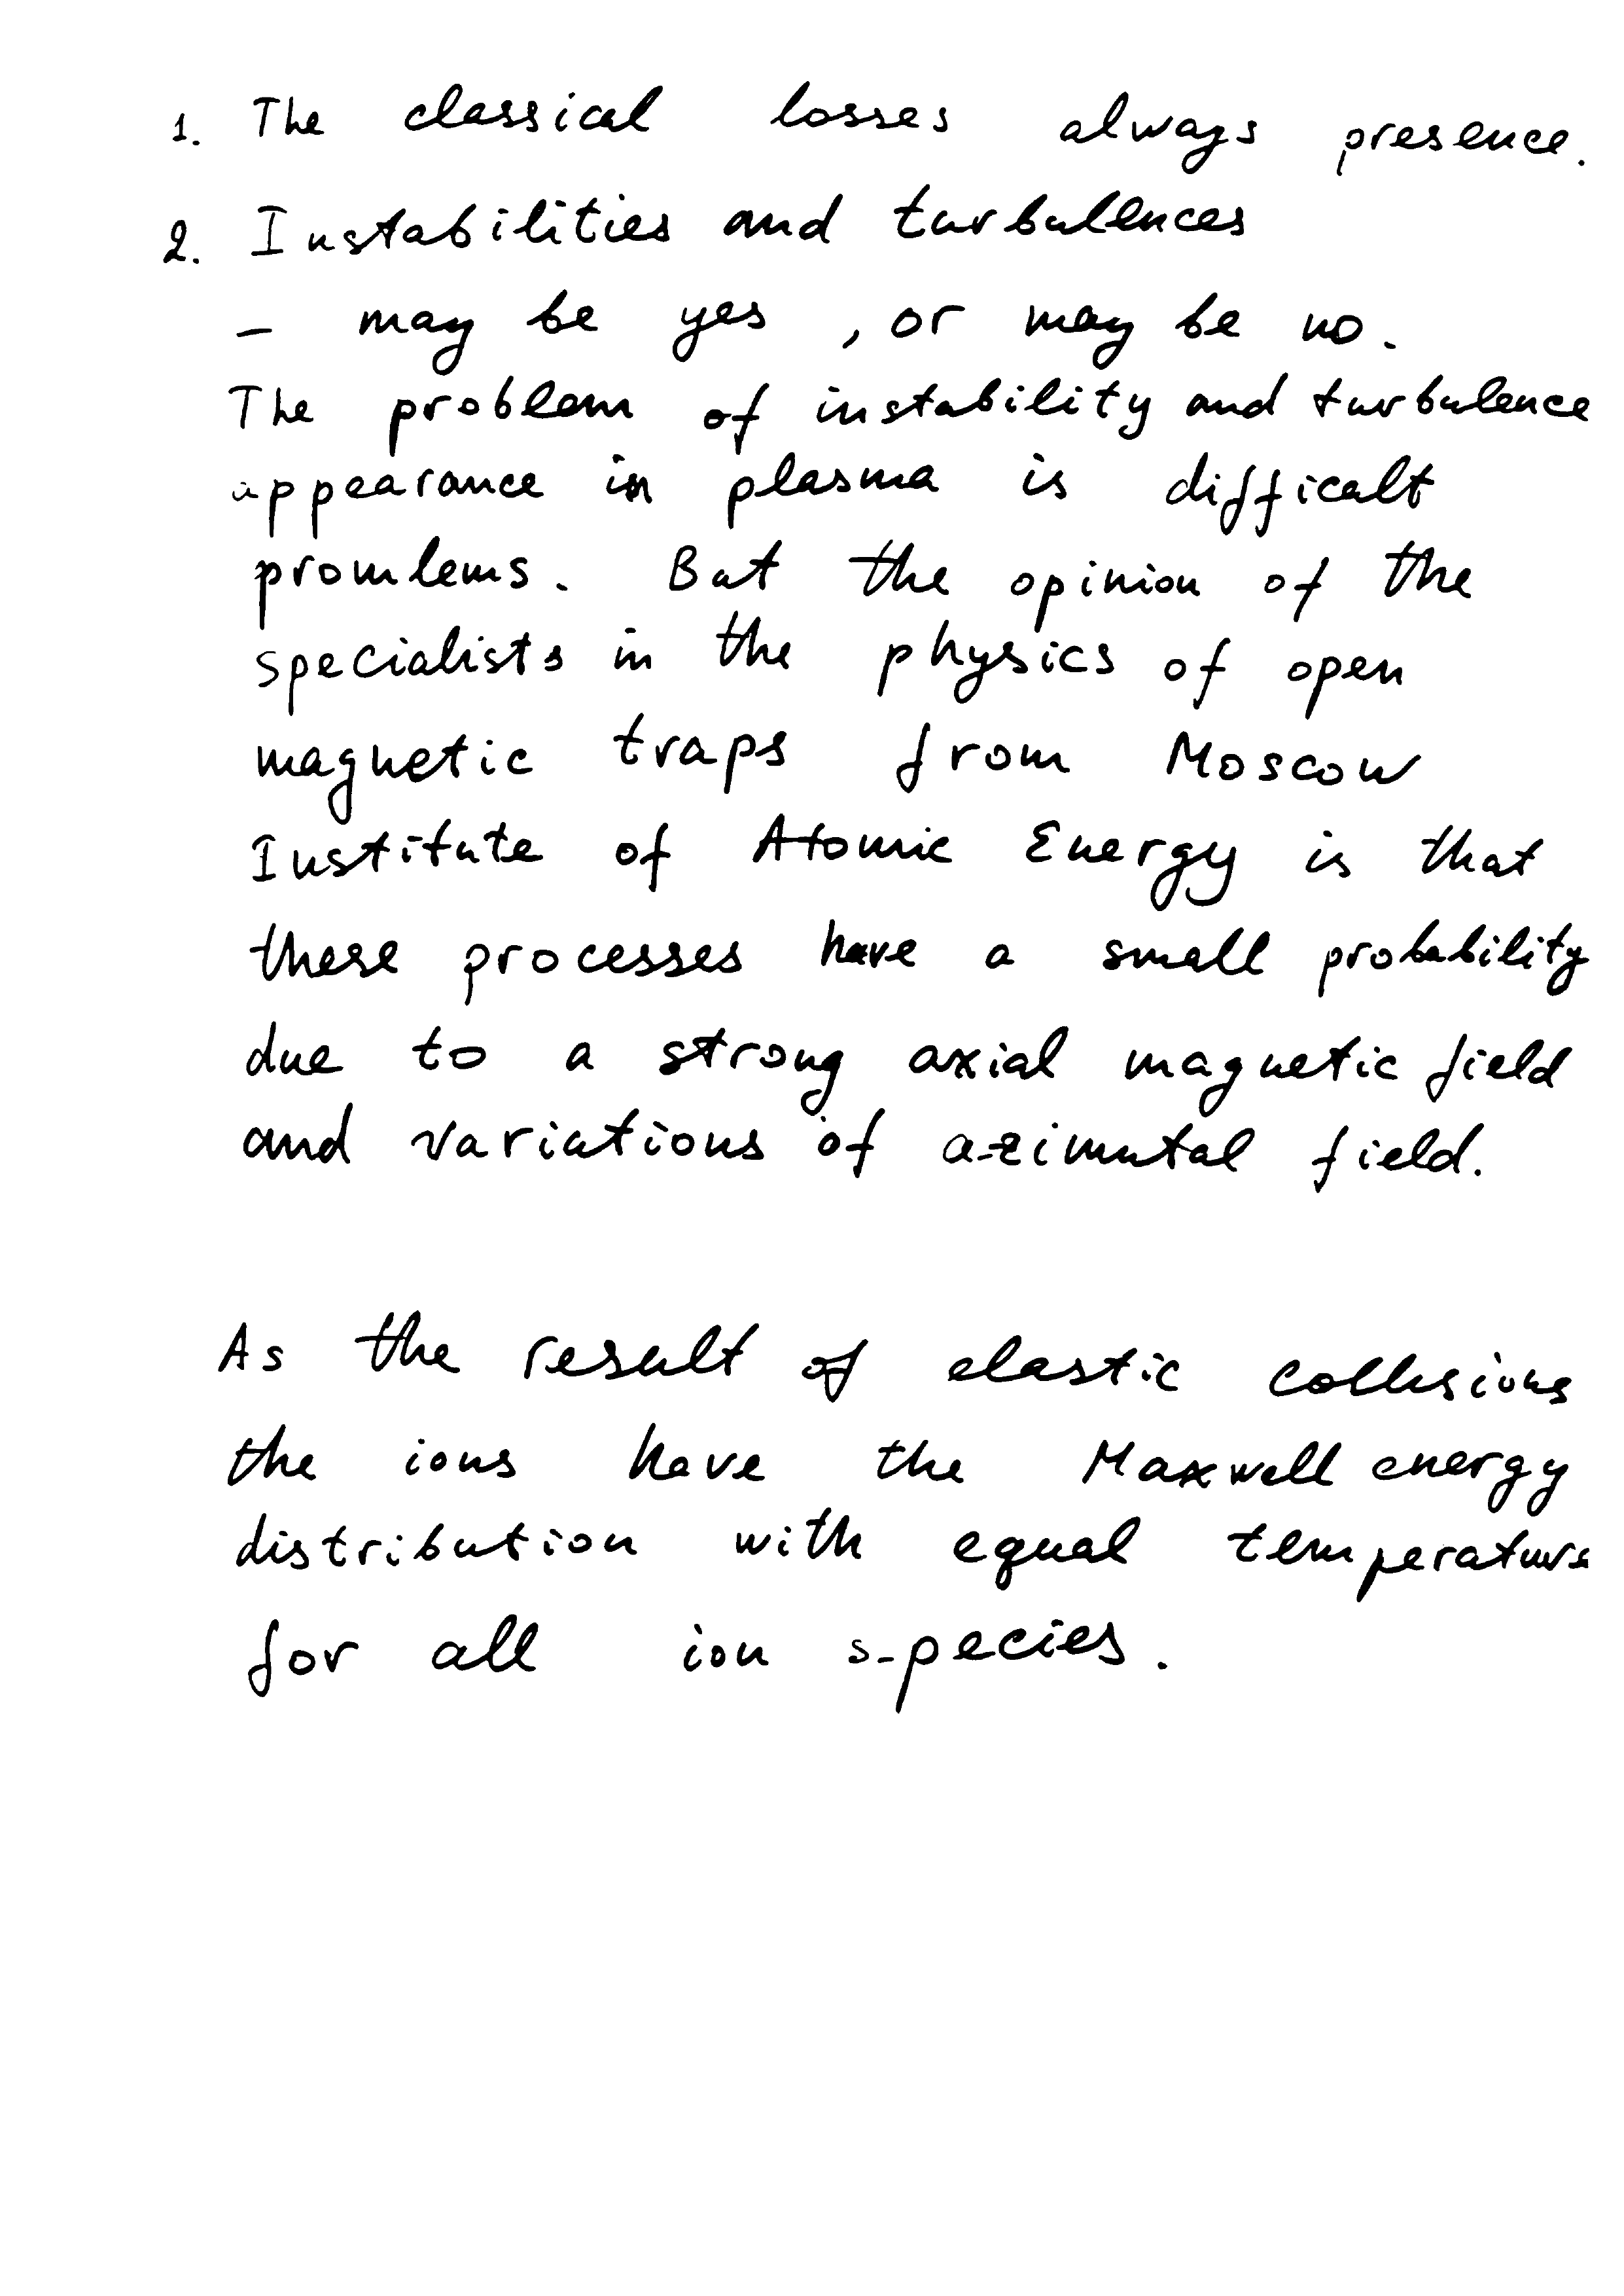 1. The classical losses always presence.
2. Instabilities and turbulences
– may be yes, or may be no.
The problem of instability and turbulence
appearance in plasma is difficalt
promlems. But the opinion of the
specialists in the physics of open
magnetic traps from Moscow
Institute of Atomic Energy is that
these processes have a small probability
due to a strong axial magnetic field
and variations of azimutal field.
As the result of elastic collisions
the ions have the Maxwell energy
distribution with equal temperature
for all ion species.